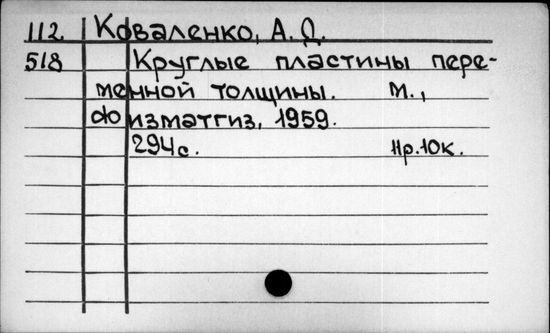 112 Коваленко, А. Д.
518 Круглые пластины пере-
менной толщины. М.,
Физматгиз, 1959.
294с. Нр.10к.